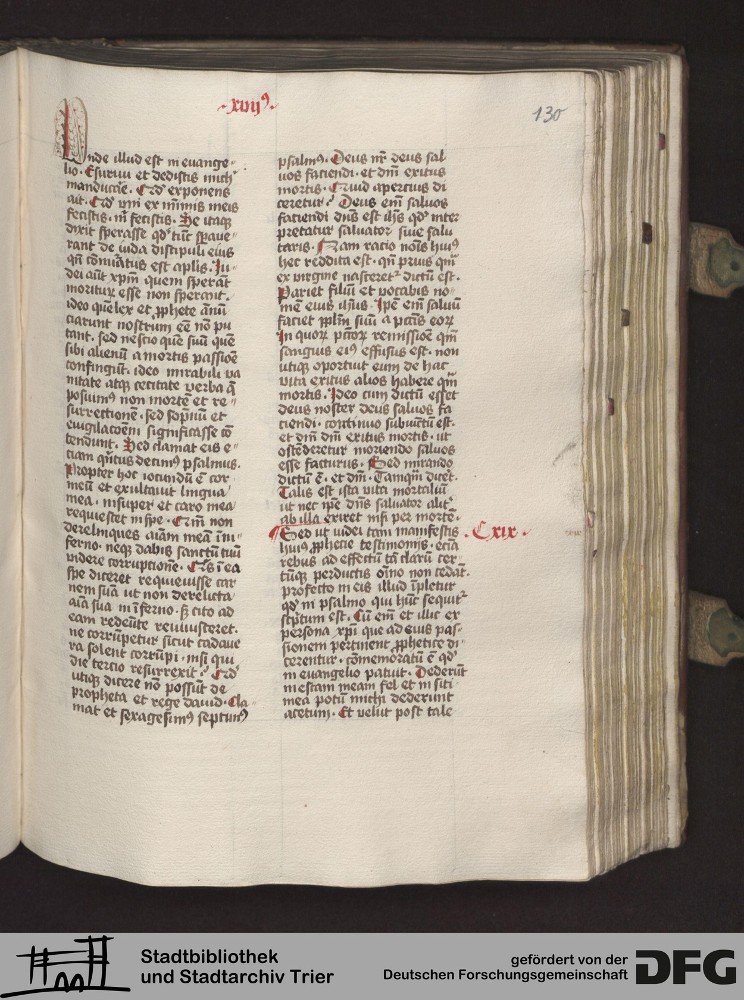 xviij⁹
130
Unde illud est in evange-
lio. Esurivi et dedistis mich
manducare. Qd' exponens
ait. Qd' uni ex minimis meis
fecistis. m̄ fecistis. Ne itaq̨
dixit sperasse qd' tūc speave-
rant de iuda discipuli eius
qn̄ cōnūatus est aplis. Iu-
dei aūt xpm̄ quem sperāt
moritur̄ esse non sperant.
ideo que lex et ꝓphete annū
ciarunt nostrum eē nō pu
tant. sed nescio quē suū quē
sibi alienū a mortis passiōe
confingūt. ideo mirabili va
nitate atq̨ cecitate verba q̄
posuim⁹ non mortē et re-
surrectionē. sed sopn̄ū et
evigilacoēm significasse cō
tendunt. Sed clamat eis e-
ciam quītus decim⁹ psalmus.
Propter hoc iocundū ē cor
meū et exultavit lingua
mea. insuper et caro mea
requiescet in spe. Qm̄ non
derelinques aīam meā in in-
ferno. neq̨ dabis sanctū tuū
videre corruptionē. Qīs ī ea
spe diceret requievisse car
nem suā ut non derelicta
aīa sua in īferno. s̄ cito ad
eam redeūte revivisceret.
ne corrūpetur sicut cadave
ra solent corrūpi. nisi qui
die tercio resurrexit? Qd'
utiq̨ dicere nō possūt de
propheta et rege david. Cla
mat et sexagesim⁹ septim⁹
psalm⁹. Deus nr̄ deus sal
vos faciendi. et dn̄i exitus
mortis. Quid apercius di
ceretur? Deus em̄ salvos
faciendi dn̄s est ih̄s qd' inter
pretatur salvator sive salu
taris. Nam ratio noīs hui⁹
hec reddita est. qn̄ prius qm̄
ex virgine nasceret² dictū est.
Pariet filiū et vocabis no-
mē eius ih̄ūs. Ipē em̄ salvū
faciet pplm̄ suū a pctīs eoꝝ
In quoꝝ pctoꝝ remissionē qm̄
sanguis ei⁹ effusus est. non
utiq̨ oportuit eum de hac
vita exitus alios habere qm̄
mortis. Ideo cum dictū esset
deus noster deus salvos fa
ciendi. continuo subiūctū est.
et dn̄i dn̄i exitus mortis. ut
ostēderetur moriendo salvos
esse facturus. Sed mirando
dictū ē. et dn̄i. Tamqm̄ dicet.
Talis est ista vita mortaliū
ut nec ipē dn̄s salvator alit̄
ab illa exiret nisi per mortē.
Sed ut iudei tam manifestis C xix.
hui⁹ ꝓphecie testimoniis. eciā
rebus ad effectū tā clarū cer
tūq̨ perductis oīno non cedāt.
profecto in eis illud īpletur
qd' in psalmo qui hūc sequit²
scp̄tum est. Cū em̄ et illic ex
persona xpi que ad eius pas-
sionem pertinent ꝓphetice di-
cerentur. cōmemoratū ē qd'
in evangelio patuit. Dederūt
in escam meam fel et in siti
mea potū michi dederunt
acetum. Et velut post tale
Stadtbibliothek
und Stadtarchiv Trier
gefördert von der
Deutschen Forschungsgemeinschaft
DFG